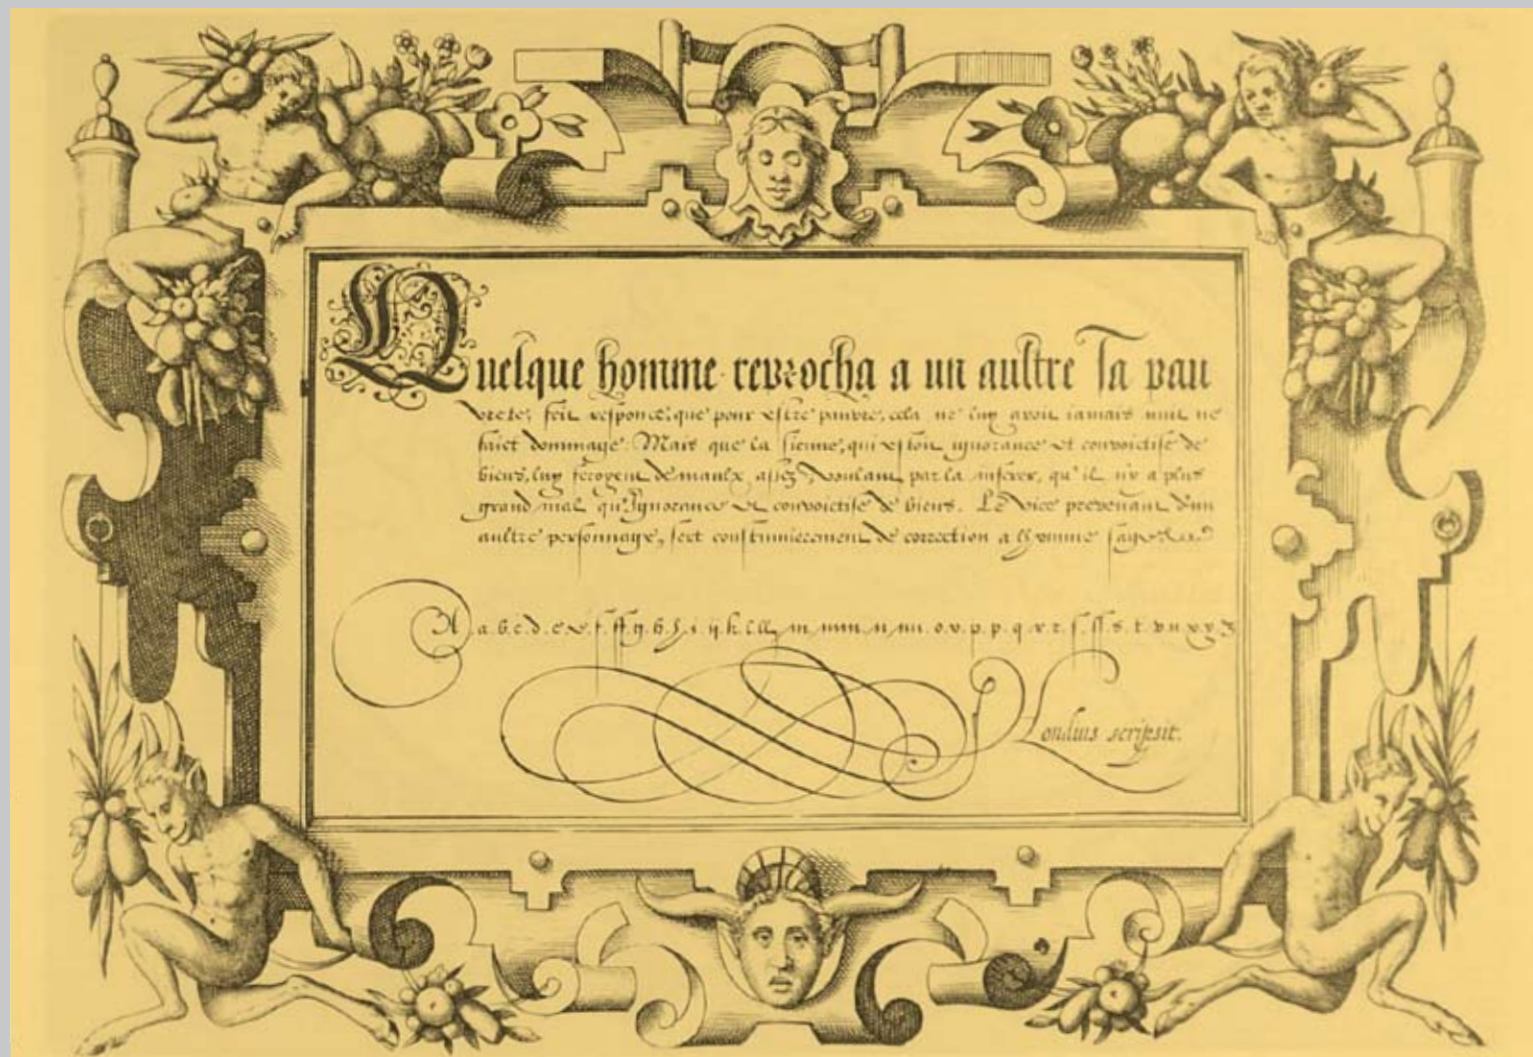 Quelque homme reprocha a un aultre sa pau
vrete, feit responce, que pour estre pauvre, cela ne luy avoit iamais nuit ne
faict dommage. Mais que la sienne, qui estoit ignorance et convoictise de
biens, luy feroyent de maulx assez, voulant par la inferer, qu'il n'y a plus
grand mal qu'Ignorance et convoictise de biens. Le vice provenant d'un
aultre personnage, sert coustumierement de correction a l'homme sage.
A. a. b. c. d. e. e. f. ff. g. h. i. k. l. ll. m. mm. n. nn. o. v. p. p. q. r. r. s. ss. s. t. v. u. x. y. z
Londius scripsit.